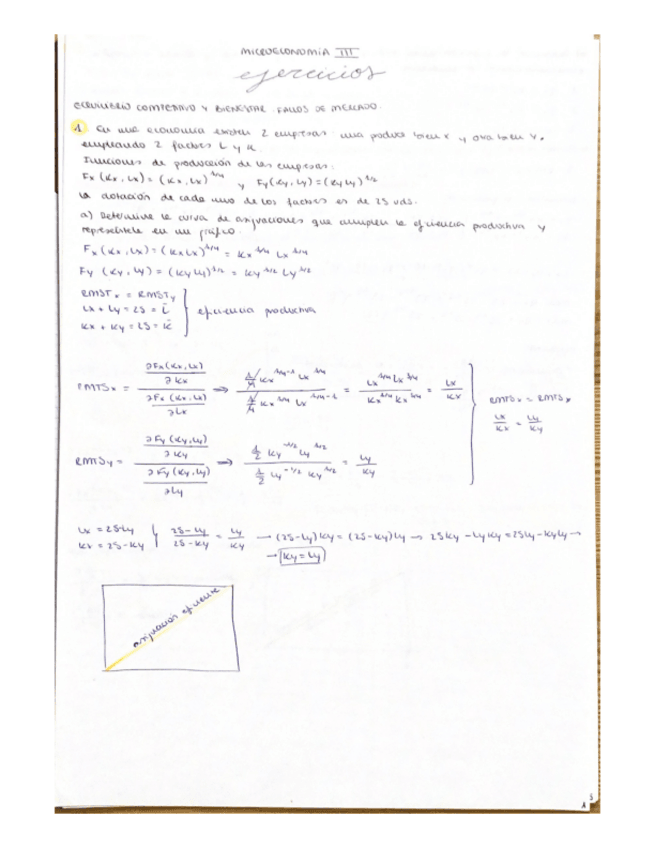 MICROECONOMÍA III
ejercicios
EQUILIBRIO COMPETITIVO Y BIENESTAR. FALLOS DE MERCADO.
1 En una economía existen 2 empresas: una produce bien x y otra bien y,
empleando 2 factores L y K.
Funciones de producción de las empresas:
Fx (Kx, Lx) = (Kx, Lx)^1/4 y Fy(Ky, Ly) = (Ky Ly)^1/2
La dotación de cada uno de los factores es de 25 uds.
a) Determine la curva de asignaciones que cumplen la eficiencia productiva y
represéntela en un gráfico.
Fx (Kx, Lx) = (KxLx)^1/4 = Kx^1/4 Lx^1/4
Fy (Ky, Ly) = (Ky Ly)^1/2 = Ky^1/2 Ly^1/2
RMSTx = RMSTy
Lx + Ly = 25 = L̄
Kx + Ky = 25 = K̄
eficiencia productiva
RMTSx = ∂Fx(Kx, Lx)/∂Kx / ∂Fx(Kx, Lx)/∂Lx ⇒ 1/4 Kx^1/4-1 Lx^1/4 / 1/4 Kx^1/4 Lx^1/4-1 = Lx^1/4 Lx^3/4 / Kx^1/4 Kx^3/4 = Lx/Kx
RMTSx = RMTSy
Lx/Kx = Ly/Ky
RMTSy = ∂Fy(Ky, Ly)/∂Ky / ∂Fy(Ky, Ly)/∂Ly ⇒ 1/2 Ky^-1/2 Ly^1/2 / 1/2 Ly^-1/2 Ky^1/2 = Ly/Ky
Lx = 25-Ly
Kx = 25-Ky
25-Ly/25-Ky = Ly/Ky → (25-Ly)Ky = (25-Ky)Ly → 25Ky - LyKy = 25Ly - KyLy →
→ Ky = Ly
asignación eficiente